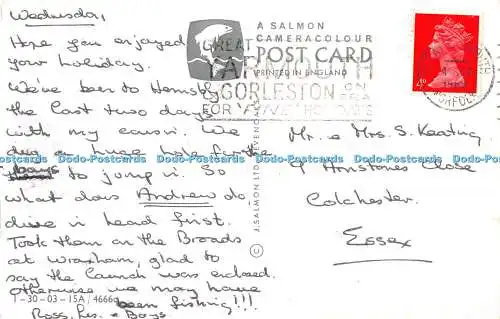 Wednesday,
Hope you enjoyed
your holiday.
We've been to Hemsby
the last two days
with my cousin. We
dug a huge hole for the
boys to jump in. So
what does Andrew do,
dive in head first.
Took them on the Broads
at Wroxham, glad to
say the launch was enclosed.
otherwise we may have
been fishing!!!
Ross, Les & Boys
1-30-03-15A / 4666
A SALMON
CAMERACOLOUR
POST CARD
PRINTED IN ENGLAND
GREAT
YARMOUTH
GORLESTON ON
FOR FINE HOLIDAYS
NORFOLK
4D
© J. SALMON LTD. SEVENOAKS
Mr. & Mrs. S. Keating
9 Honstones Close
Colchester.
Essex
Dodo-Postcards Dodo-Postcards Dodo-Postcards Dodo-Postcards Dodo-Postcards Dodo-Postcards